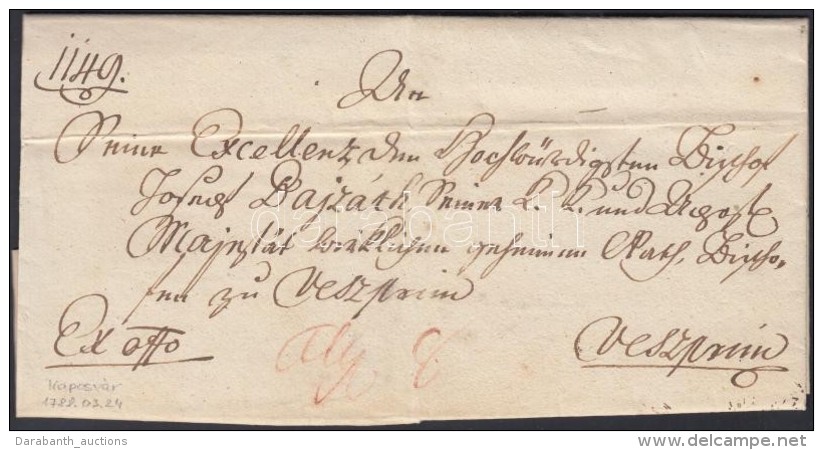 1149.
An
Seine Excellenz den Hochwürdigsten Bischof
Josef Bajzáth Seiner K. K. und Apost.
Majestät würklichen geheimen Rath, Bischo-
fen zu Veszprim
Ex offo
Veszprim
Kaposvár
1788.03.24
darabanth
Darabanth_auctions
delcampe.net